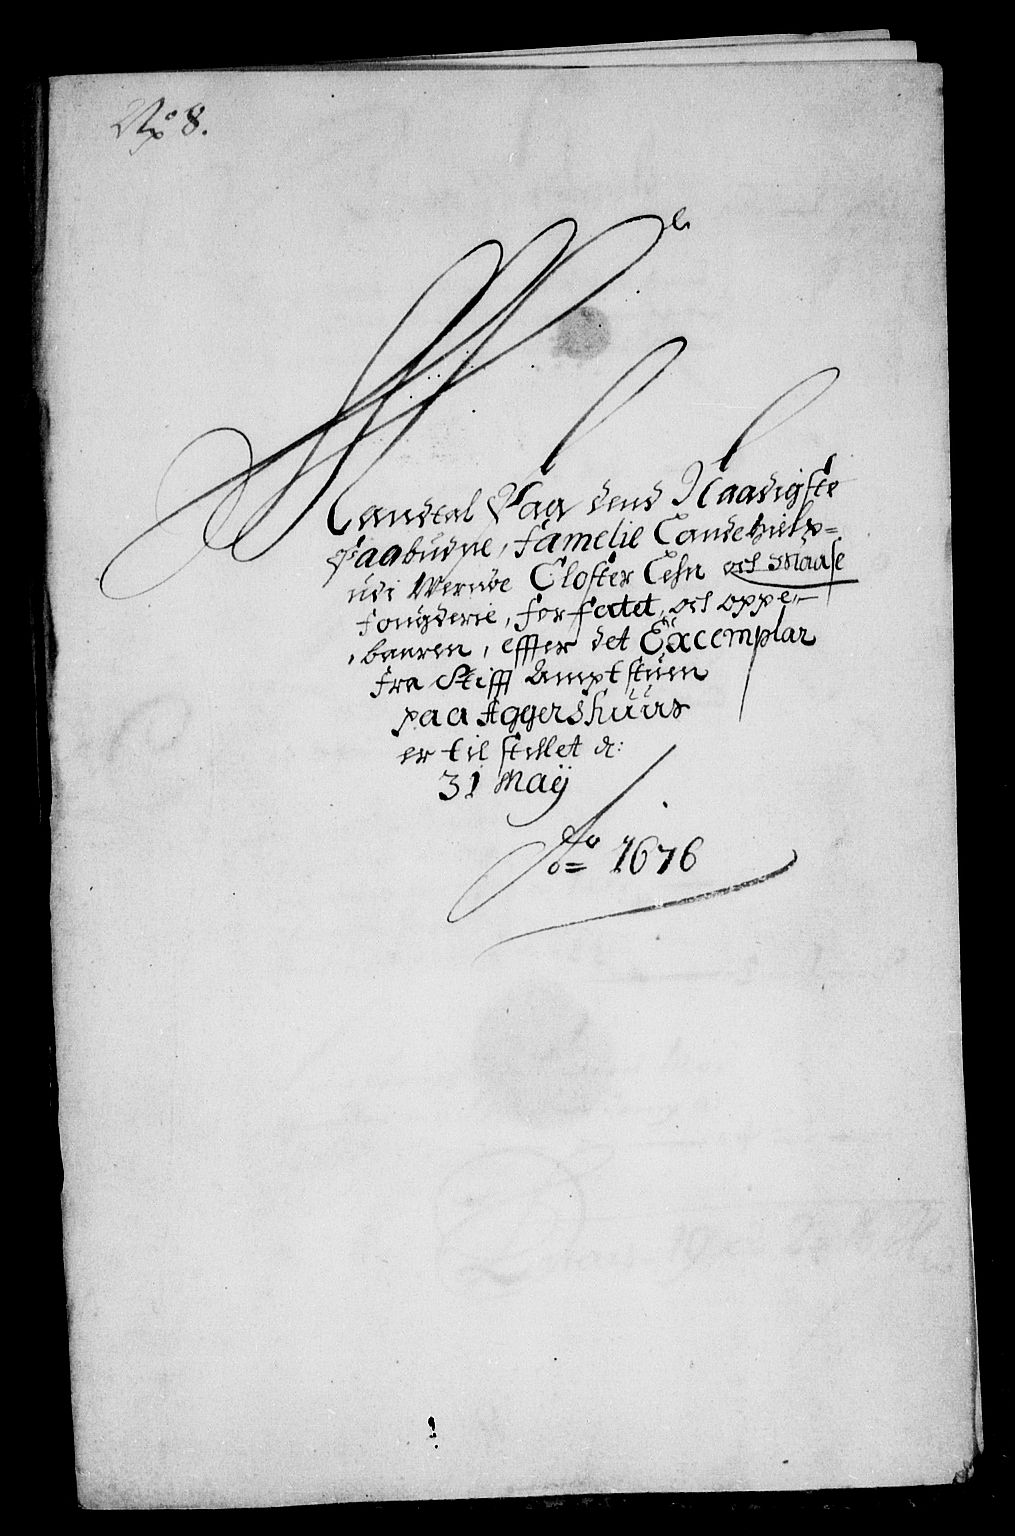 No 8.
Mandtal Paa dend Naadigste
Paabudne, Familie Landehielp
udi Wernøe Closter Lehn och Maase
Fougderie, forfertet, och oppe-
baaren, effter det Excemplar
fra Stifft Amptstuen
paa Aggershuus
er til stillet d:
31 Maÿ
Ao 1676